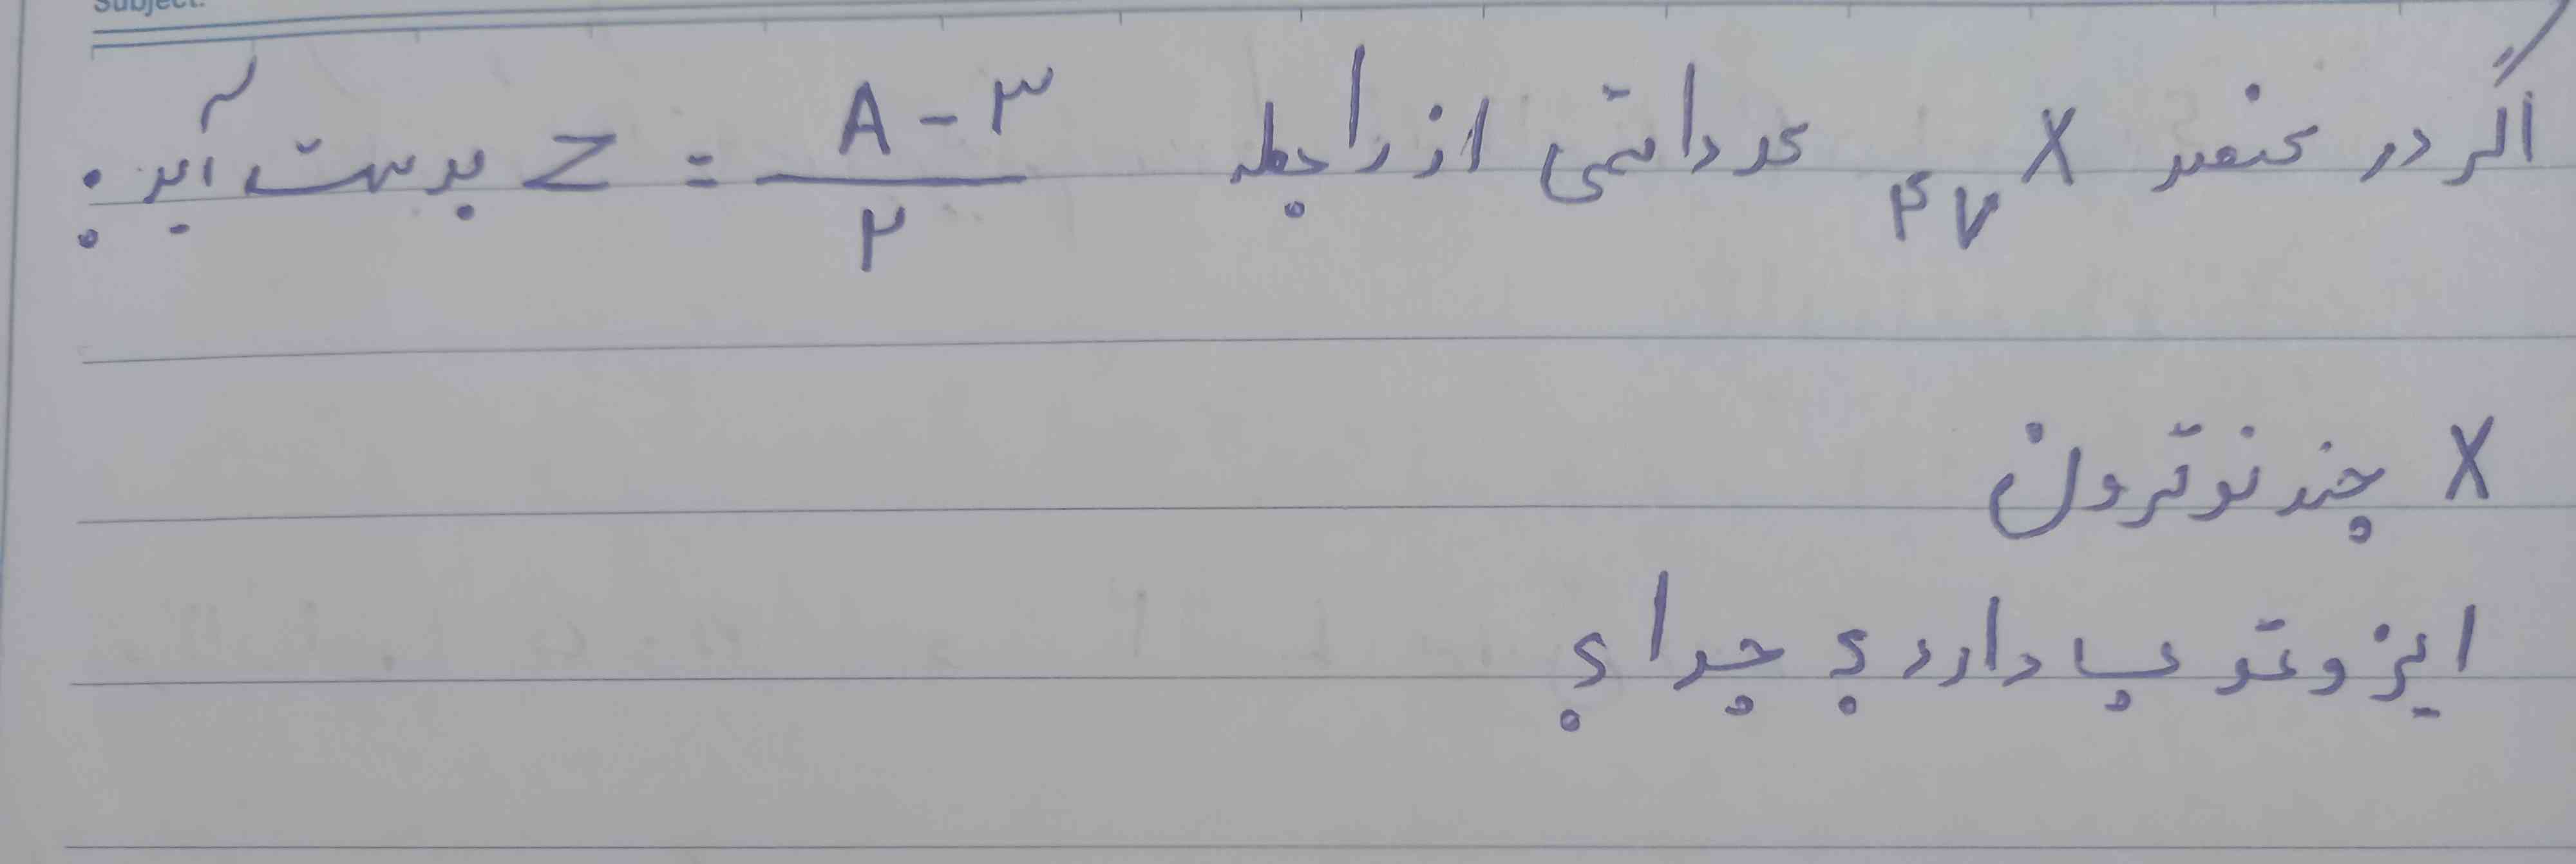 Subject:
اگر در عنصر X ۴۷ عدد اتمی از رابطه Z = (A - ۳) / ۲ بدست آید:
X چند نوترون
ایزوتوپ دارد؟ چرا؟